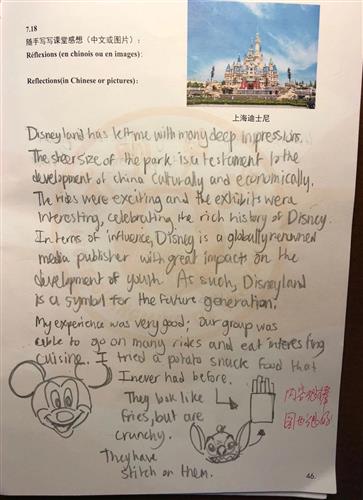 7.18
随手写写课堂感想（中文或图片）：
Réflexions (en chinois ou en images):
Reflections(in Chinese or pictures):
上海迪士尼
Disneyland has left me with many deep impressions.
The sheer size of the park is a testament to the
development of china culturally and economically.
The rides were exciting and the exhibits were
interesting, celebrating the rich history of Disney.
In terms of influence, Disney is a globally renowned
media publisher with great impacts on the
development of youth. As such, Disneyland
is a symbol for the future generation.
My experience was very good; our group was
able to go on many rides and eat interesting
cuisine. I tried a potato snack food that
I never had before.
They look like
fries, but are
crunchy.
They have
stitch on them.
内容很棒
图也很好
46